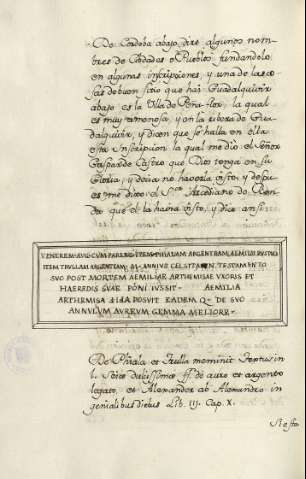 De Cordoba abajo, diré algunos nom-
bres de Ciudades o Pueblos fundandolo
en algunas inscripciones, y una de las co-
sas de buen sitio que hai Guadalquivir
abajo es la Villa de Peña-flor, la qual
es muy famosa, y en la ribera de Gua-
dalquivir, y dicen que se halla en ella
esta Inscripcion la qual me dio el Señor
Gaspar de Castro que Dios tenga en su
Gloria, y decia no haverla visto, y despu-
es me dixo el Arcediano de Ron-
da que el la havia visto, y dice ansi.
VENEREM AVG CVM PARERGO ITEM PHIALAM ARGENTEAM AEMILI RVSTICI
ITEM TRVLLAM ARGENTEAM M ANNIVS CELSITAN TESTAMENTO
SVO POST MORTEM AEMILIAE ARTHEMISAE VXORIS ET
HAEREDIS SVAE PONI IVSSIT AEMILIA
ARTHEMISA POSVIT EADEM Q DE SVO
ANNVLVM AVREVM GEMMA MELIORE
De Phiala et Trulla meminit
l. ff. de auro et argento
legato, et Alexander ab Alexandro in
genialibus diebus Lib. III. Cap. X.
Si esta